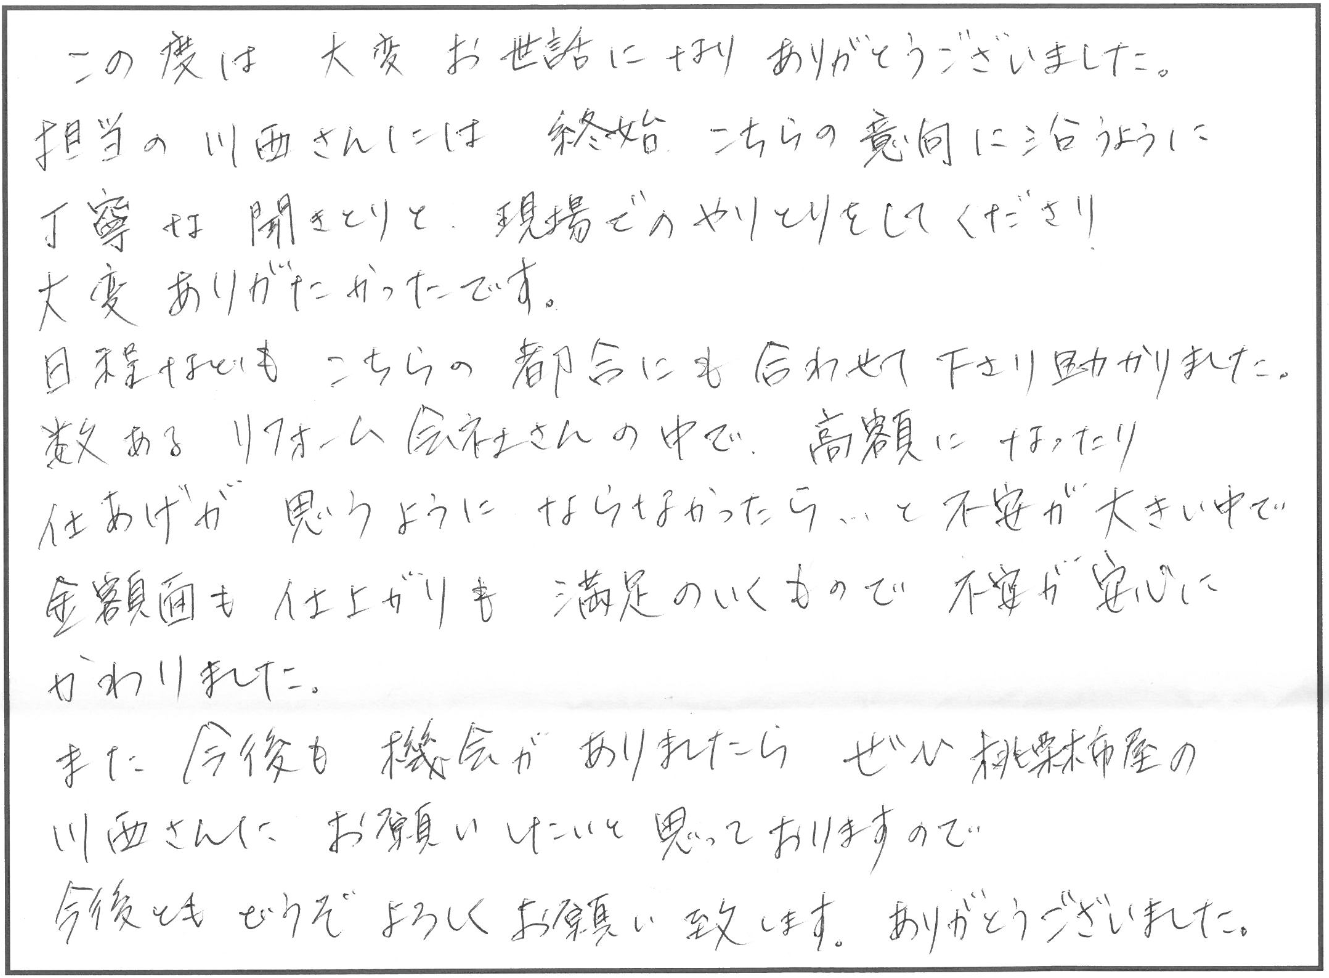 この度は 大変 お世話に なり ありがとうございました。
担当の 川西さんには 終始 こちらの 意向に 沿うように
丁寧な 聞きとりと、現場での やりとりをして くださり
大変 ありがたかったです。
日程なども こちらの 都合にも 合わせて 下さり 助かりました。
数ある リフォーム 会社さんの 中で、高額に なったり
仕あげが 思うように ならなかったら…と 不安が 大きい中で
金額面も 仕上がりも 満足のいくもので 不安が 安心に
かわりました。
また 今後も 機会が ありましたら ぜひ 桃栗柿屋の
川西さんに お願い したいと 思って おりますので
今後とも どうぞ よろしく お願い 致します。ありがとうございました。